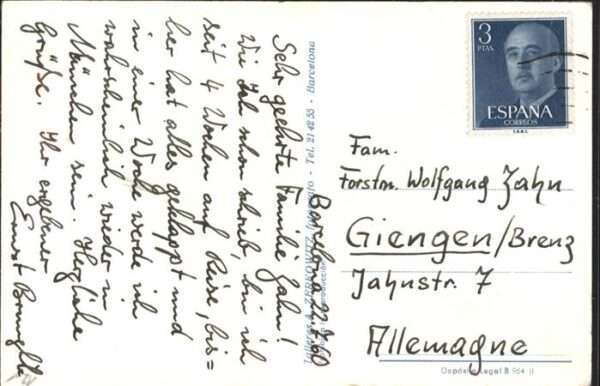 Barcelona 22.7.60
Sehr geehrte Familie Jahn!
Wie Ich schon schrieb, bin ich
seit 4 Wochen auf Reise, bis=
her hat alles geklappt und
in einer Woche werde ich
wahrscheinlich wieder in
München sein. Herzliche
Grüße. Ihr ergebener
Ernst
Fotografías ZERKOWITZ - Tel. 21 42 53 - Barcelona
3
PTAS
ESPAÑA
CORREOS
Fam.
Forstm. Wolfgang Jahn
Giengen/Brenz
Jahnstr. 7
Allemagne
Depósito Legal B 964